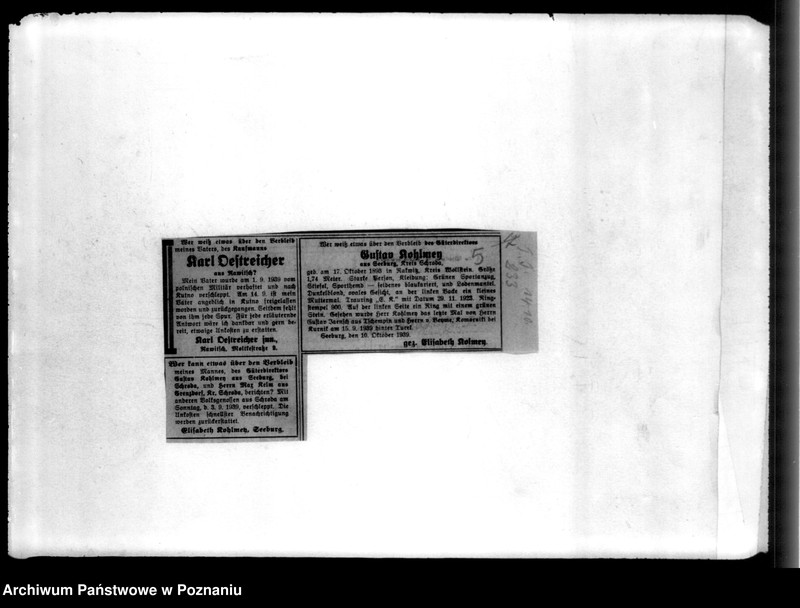 Wer weiß etwas über den Verbleib
meines Vaters, des Kaufmanns
Karl Oestreicher
aus Rawitsch?
Mein Vater wurde am 1. 9. 1939 vom
polnischen Militär verhaftet und nach
Kutno verschleppt. Am 14. 9. ist mein
Vater angeblich in Kutno freigelassen
worden und zurückgegangen. Seitdem fehlt
von ihm jede Spur. Für jede erläuternde
Antwort wäre ich dankbar und gern be-
reit, etwaige Unkosten zu erstatten.
Karl Oestreicher jun.,
Rawitsch, Moltkestraße 2.
Wer kann etwas über den Verbleib
meines Mannes, des Güterdirektors
Gustav Kohlmey aus Seeburg, bei
Schroda, und Herrn Max Keim aus
Kr. Schroda, berichten? Mit
anderen Volksgenossen aus Schroda am
Sonntag, d. 3. 9. 1939, verschleppt. Die
Unkosten schnellster Benachrichtigung
werden zurückerstattet.
Elisabeth Kohlmey, Seeburg.
Wer weiß etwas über den Verbleib des Güterdirektors
Gustav Kohlmey
aus Seeburg, Kreis Schroda,
geb. am 17. Oktober 1893 in Rakwitz, Kreis Wollstein. Größe
1,74 Meter. Starke Person, Kleidung: Grünen Sportanzug,
Stiefel, Sporthemd — seidenes blaukariert, und Lodenmantel.
Dunkelblond, ovales Gesicht, an der linken Backe ein kleines
Muttermal. Trauring „E. K.“ mit Datum 28. 11. 1922. Ring-
stempel 900. Auf der linken Seite ein Ring mit einem grünen
Stein. Gesehen wurde Herr Kohlmey das letzte Mal von Herrn
Gustav Jaensch aus Tschempin und Herrn v. Beyme, Komorniki bei
Kurnik am 15. 9. 1939 hinter Turek.
Seeburg, den 10. Oktober 1939.
gez. Elisabeth Kolmey.
5
Archiwum Państwowe w Poznaniu